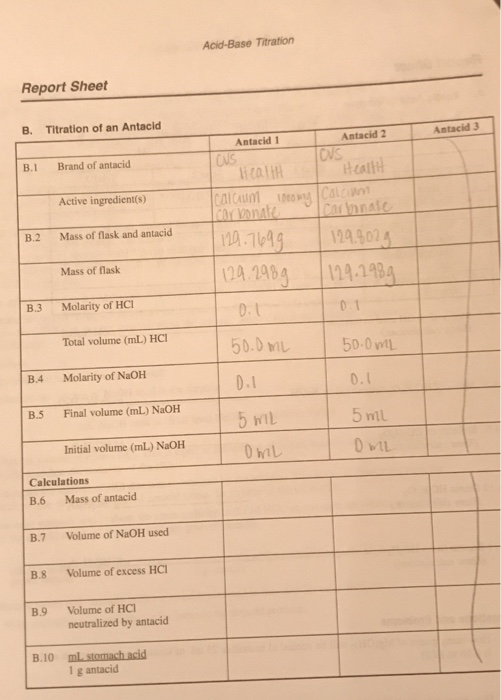 Acid-Base Titration
Report Sheet
B. Titration of an Antacid
Antacid 1 Antacid 2 Antacid 3
B.1 Brand of antacid CVS Health CVS Health
Active ingredient(s) calcium 1000mg carbonate Calcium Carbonate
B.2 Mass of flask and antacid 129.769g 129.802g
Mass of flask 129.298g 129.298g
B.3 Molarity of HCl 0.1 0.1
Total volume (mL) HCl 50.0 mL 50.0 mL
B.4 Molarity of NaOH 0.1 0.1
B.5 Final volume (mL) NaOH 5 mL 5 mL
Initial volume (mL) NaOH 0 mL 0 mL
Calculations
B.6 Mass of antacid
B.7 Volume of NaOH used
B.8 Volume of excess HCl
B.9 Volume of HCl
neutralized by antacid
B.10 mL stomach acid
1 g antacid